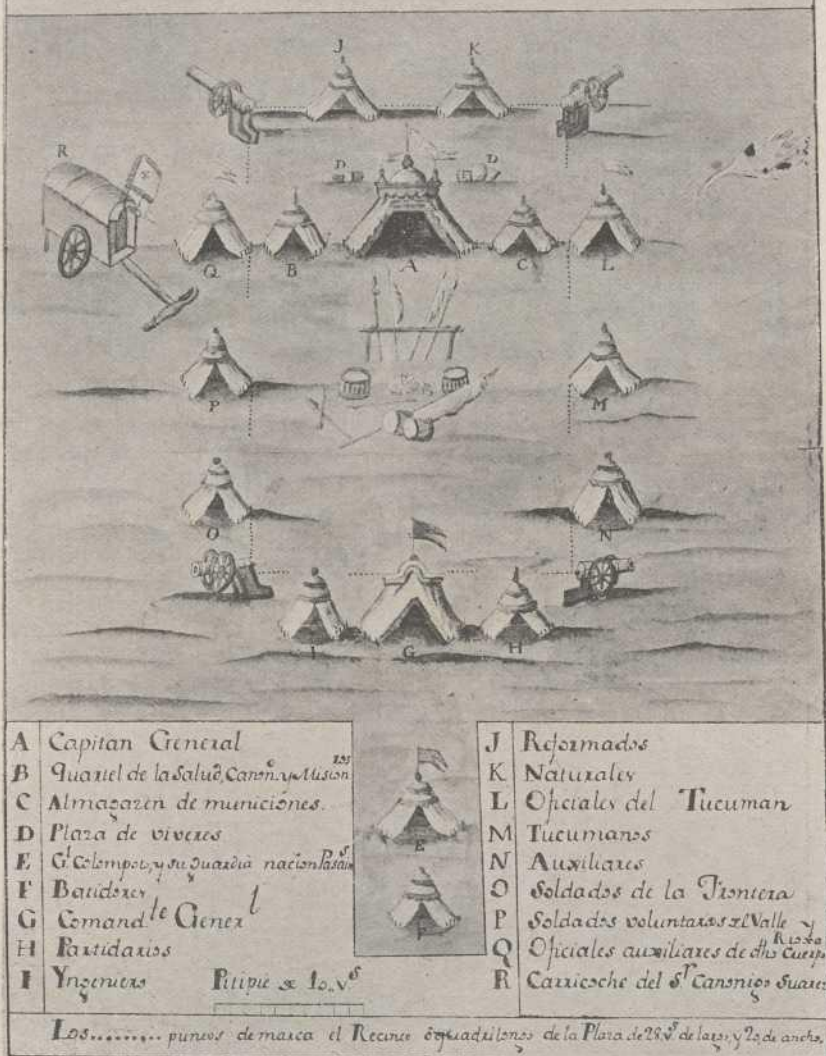 J K
R
D D
Q B A C L
P M
O N
I G H
A Capitan General
B Quartel de la Salud, Canon.º y Mision.ros
C Almagazen de municiones.
D Plaza de viveres
E G.l Colompot, y su guardia nacion
F Batidores
G Comand.te Gener.l
H Partidarios
I Yngeniero
Pitipie de 10 v.s
E
F
J Reformados
K Naturales
L Oficiales del Tucuman
M Tucumanos
N Auxiliares
O Soldados de la Frontera
P Soldados voluntarios del Valle y Rioxa
Q Oficiales auxiliares de dho Cuerpo
R Carricoche del S.r Canonigo Suares
Los......... puntos de marca el Recinto de la Plaza de 28 v.s de largo, y 20, de ancho.